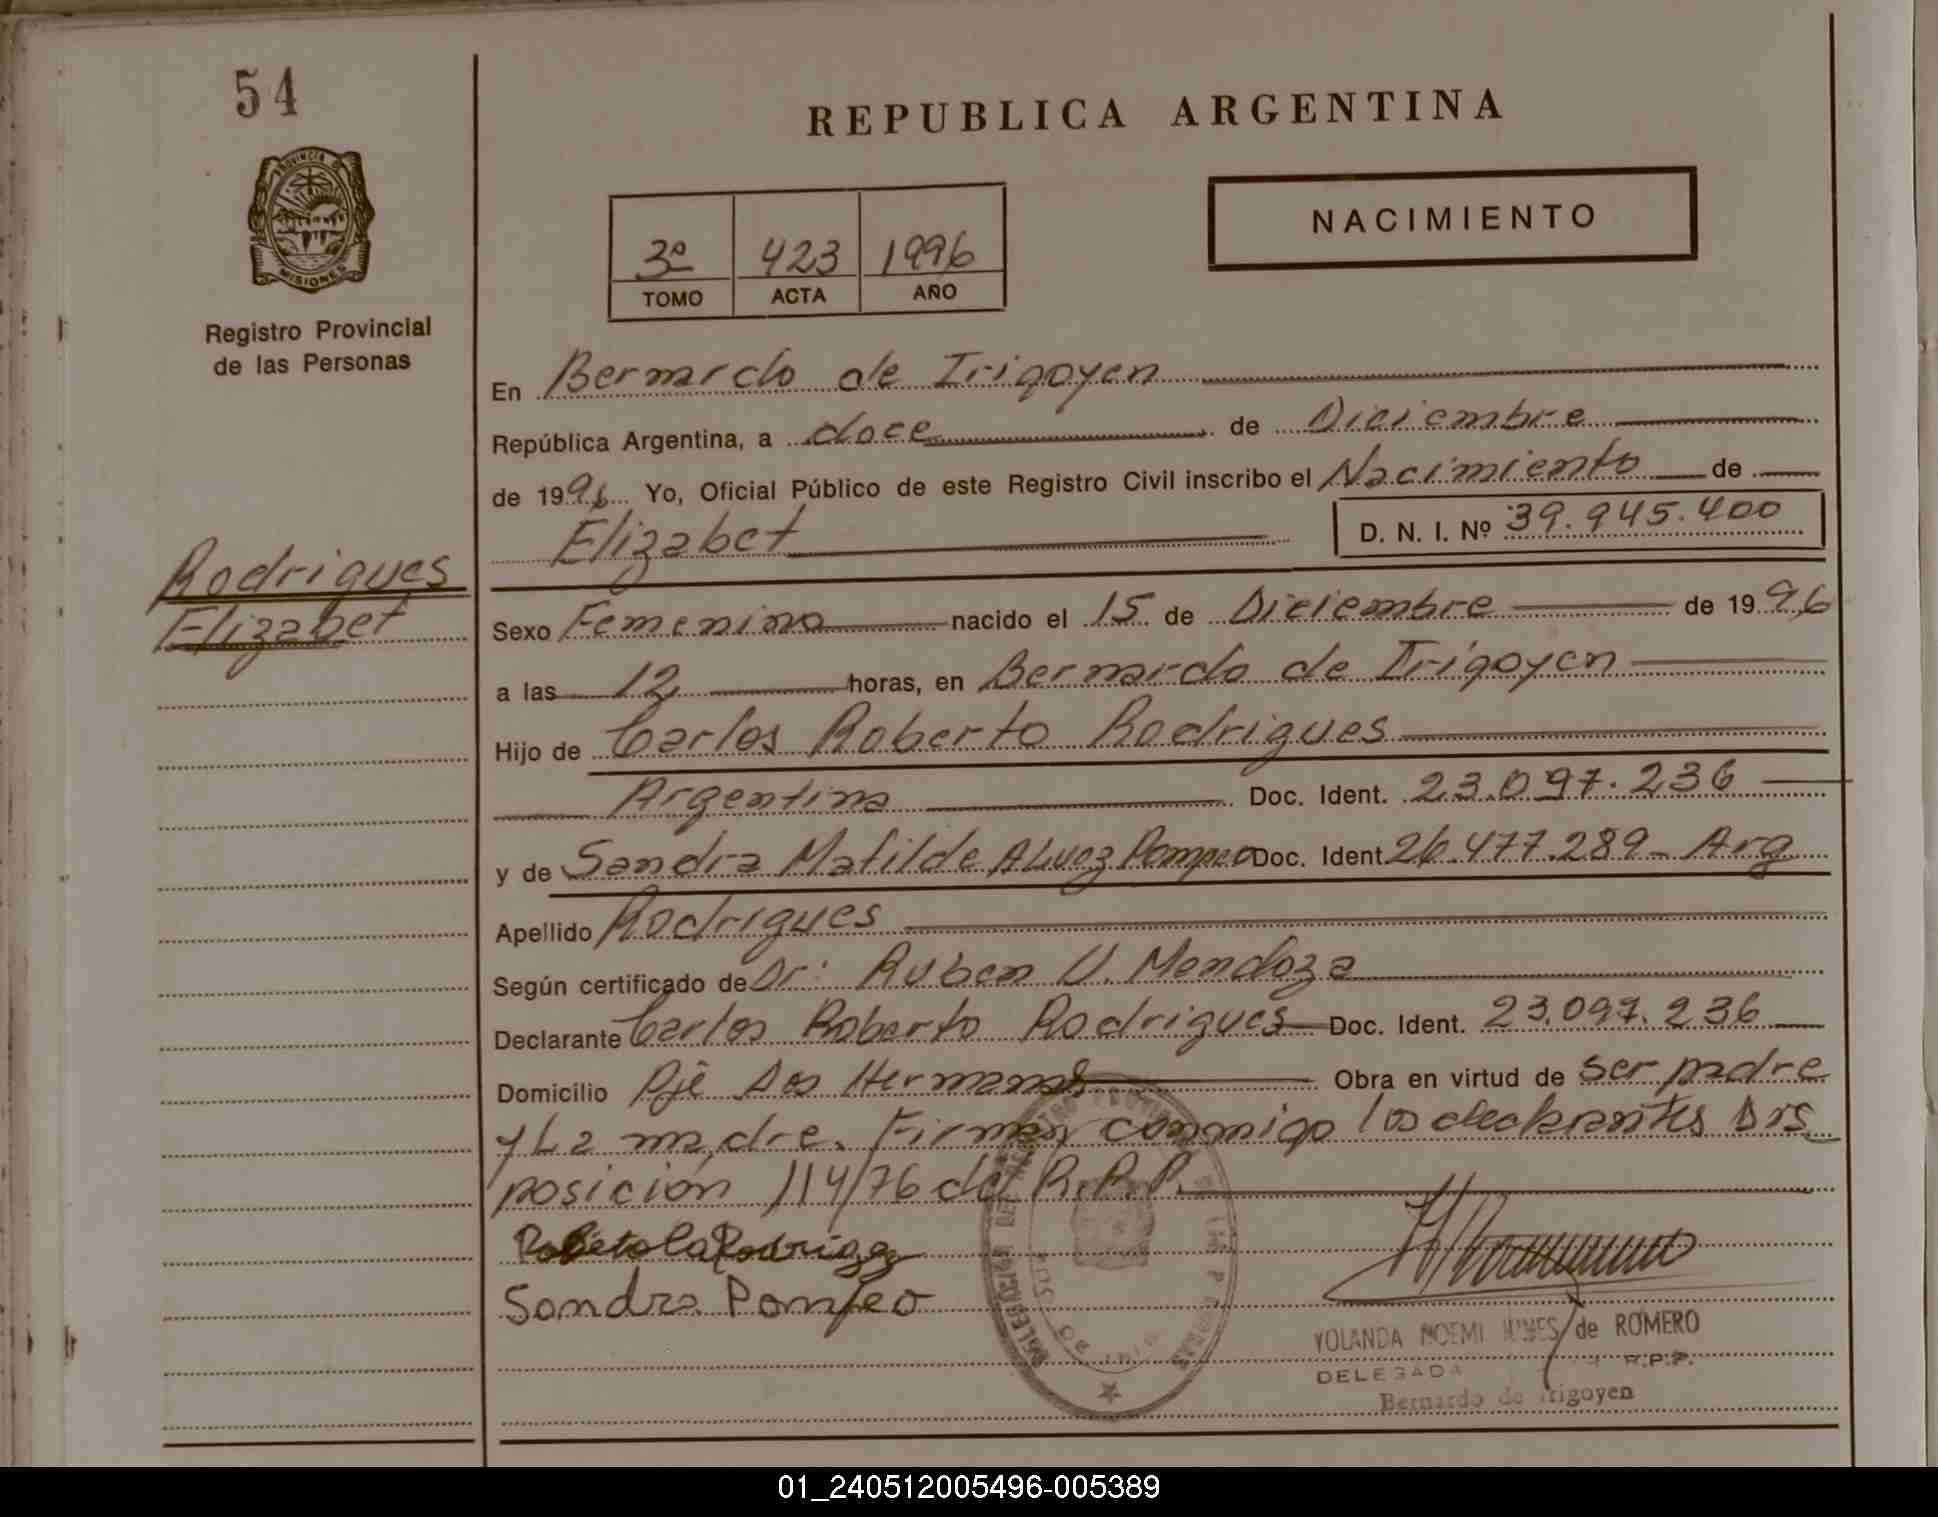 54
REPUBLICA ARGENTINA
PROVINCIA DE
MISIONES
NACIMIENTO
3º 423 1996
TOMO ACTA AÑO
Registro Provincial
de las Personas
En Bernardo de Irigoyen
República Argentina, a doce de Diciembre
de 1996 Yo, Oficial Público de este Registro Civil inscribo el Nacimiento de
Elizabet D. N. I. Nº 39.945.400
Rodrigues
Elizabet
Sexo Femenino nacido el 15 de Diciembre de 1996
a las 12 horas, en Bernardo de Irigoyen
Hijo de Carlos Roberto Rodrigues
Argentina Doc. Ident. 23.097.236
y de Sandra Matilde Alvez Pompeo Doc. Ident 26.477.289 - Arg
Apellido Rodrigues
Según certificado de Dr: Ruben U. Mendoza
Declarante Carlos Roberto Rodrigues Doc. Ident. 23.097.236
Domicilio Pje Dos Hermanas Obra en virtud de ser padre
y La madre. Firman conmigo los declarantes Dis
posición 114/76 del R.P.P.
Sandra Pompeo
YOLANDA NOEMI de ROMERO
DELEGADA R.P.P.
Bernardo de Irigoyen
01_240512005496-005389